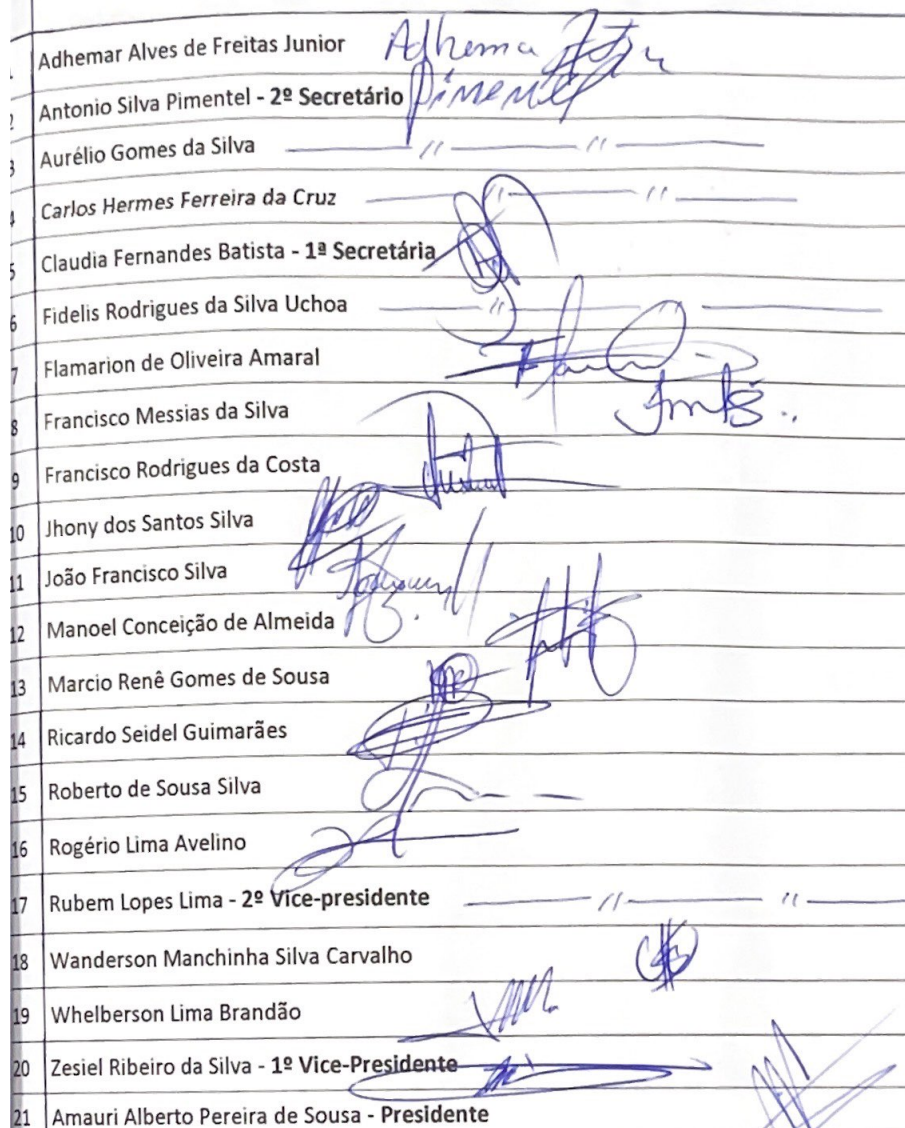 Adhemar Alves de Freitas Junior Adhema
2 Antonio Silva Pimentel - 2º Secretário Pimentel
3 Aurélio Gomes da Silva — // — // —
4 Carlos Hermes Ferreira da Cruz — // — // —
5 Claudia Fernandes Batista - 1ª Secretária
6 Fidelis Rodrigues da Silva Uchoa — // — // —
7 Flamarion de Oliveira Amaral
8 Francisco Messias da Silva
9 Francisco Rodrigues da Costa
10 Jhony dos Santos Silva
11 João Francisco Silva
12 Manoel Conceição de Almeida
13 Marcio Renê Gomes de Sousa
14 Ricardo Seidel Guimarães
15 Roberto de Sousa Silva
16 Rogério Lima Avelino
17 Rubem Lopes Lima - 2º Vice-presidente — // — // —
18 Wanderson Manchinha Silva Carvalho
19 Whelberson Lima Brandão
20 Zesiel Ribeiro da Silva - 1º Vice-Presidente
21 Amauri Alberto Pereira de Sousa - Presidente